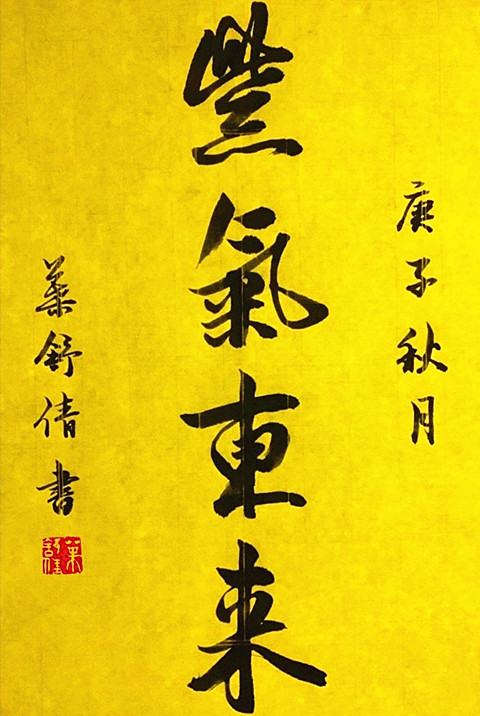 庚子秋月
紫氣東来
葉舒倩書
葉舒倩